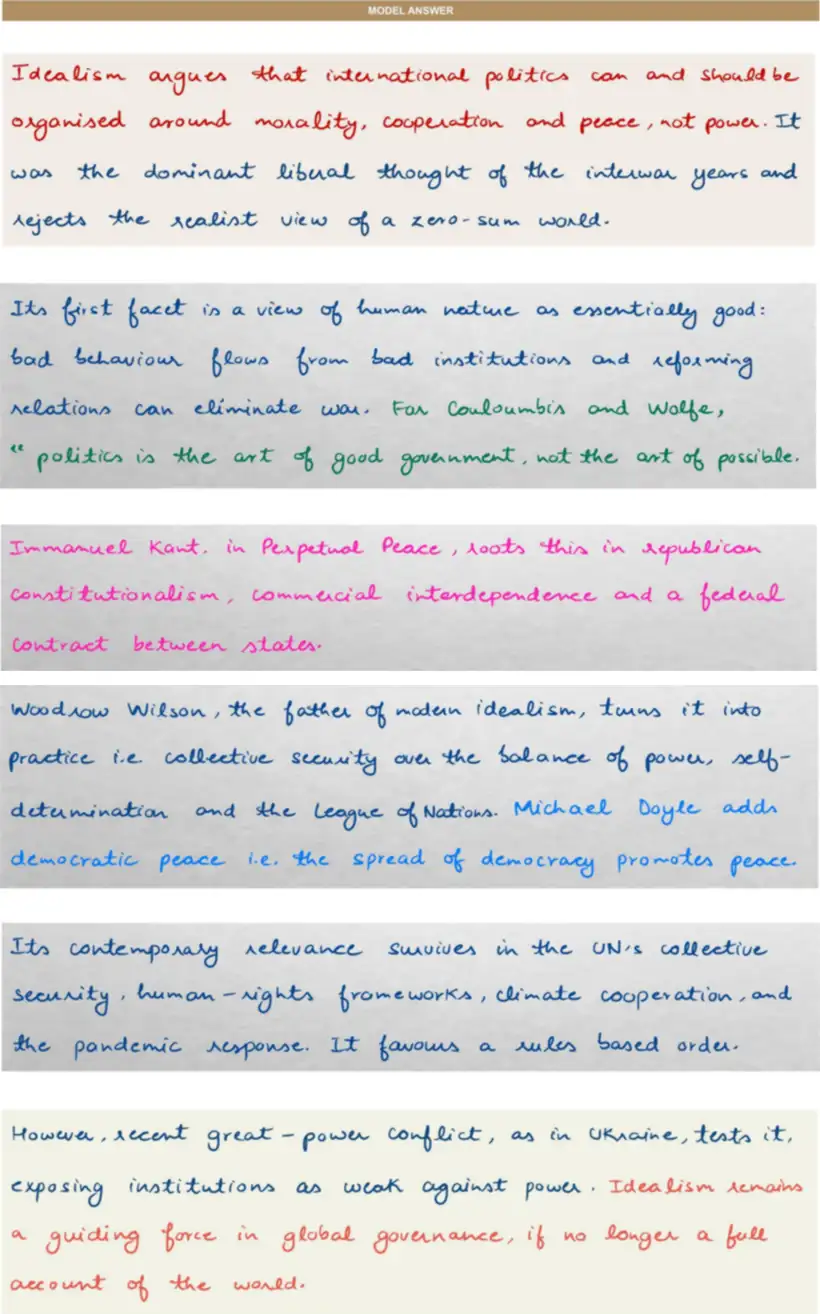 MODEL ANSWER
Idealism argues that international politics can and should be
organised around morality, cooperation and peace, not power. It
was the dominant liberal thought of the interwar years and
rejects the realist view of a zero-sum world.
Its first facet is a view of human nature as essentially good:
bad behaviour flows from bad institutions and reforming
relations can eliminate war. For Couloumbis and Wolfe,
"politics is the art of good government, not the art of possible.
Immanuel Kant. in Perpetual Peace, roots this in republican
constitutionalism, commercial interdependence and a federal
contract between states.
Woodrow Wilson, the father of modern idealism, turns it into
practice i.e. collective security over the balance of power, self-
determination and the League of Nations. Michael Doyle adds
democratic peace i.e. the spread of democracy promotes peace.
Its contemporary relevance survives in the UN's collective
security, human-rights frameworks, climate cooperation, and
the pandemic response. It favours a rules based order.
However, recent great-power conflict, as in Ukraine, tests it,
exposing institutions as weak against power. Idealism remains
a guiding force in global governance, if no longer a full
account of the world.